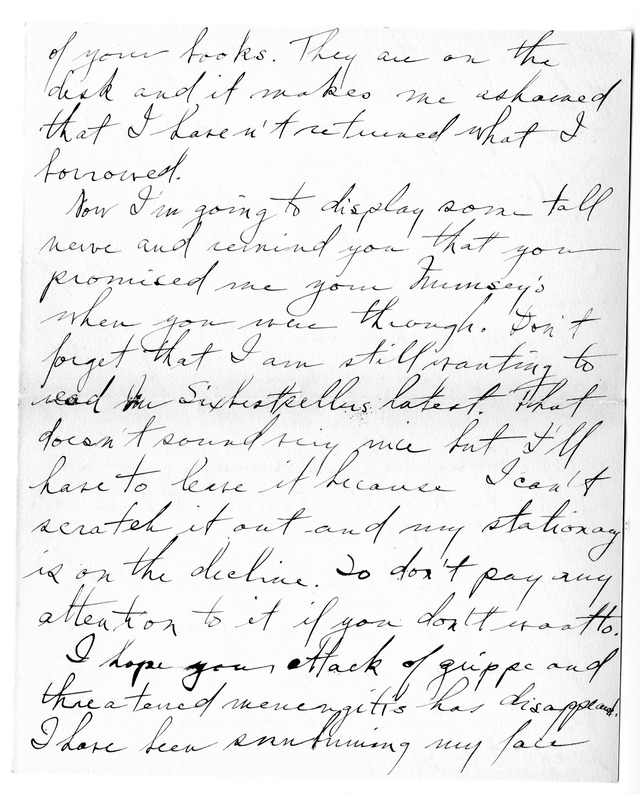 of your books. They are on the
desk and it makes me ashamed
that I haven't returned what I
borrowed.
Now I'm going to display some tall
nerve and remind you that you
promised me your Munsey's
when you were through. Don't
forget that I am still wanting to
read Sixbestsellers latest. That
doesn't sound very nice but I'll
have to leave it because I can't
scratch it out and my stationary
is on the decline. So don't pay any
attention to it if you don't want to.
I hope your attack of grippe and
threatened menengitis has disappeared.
I have been sunburning my face